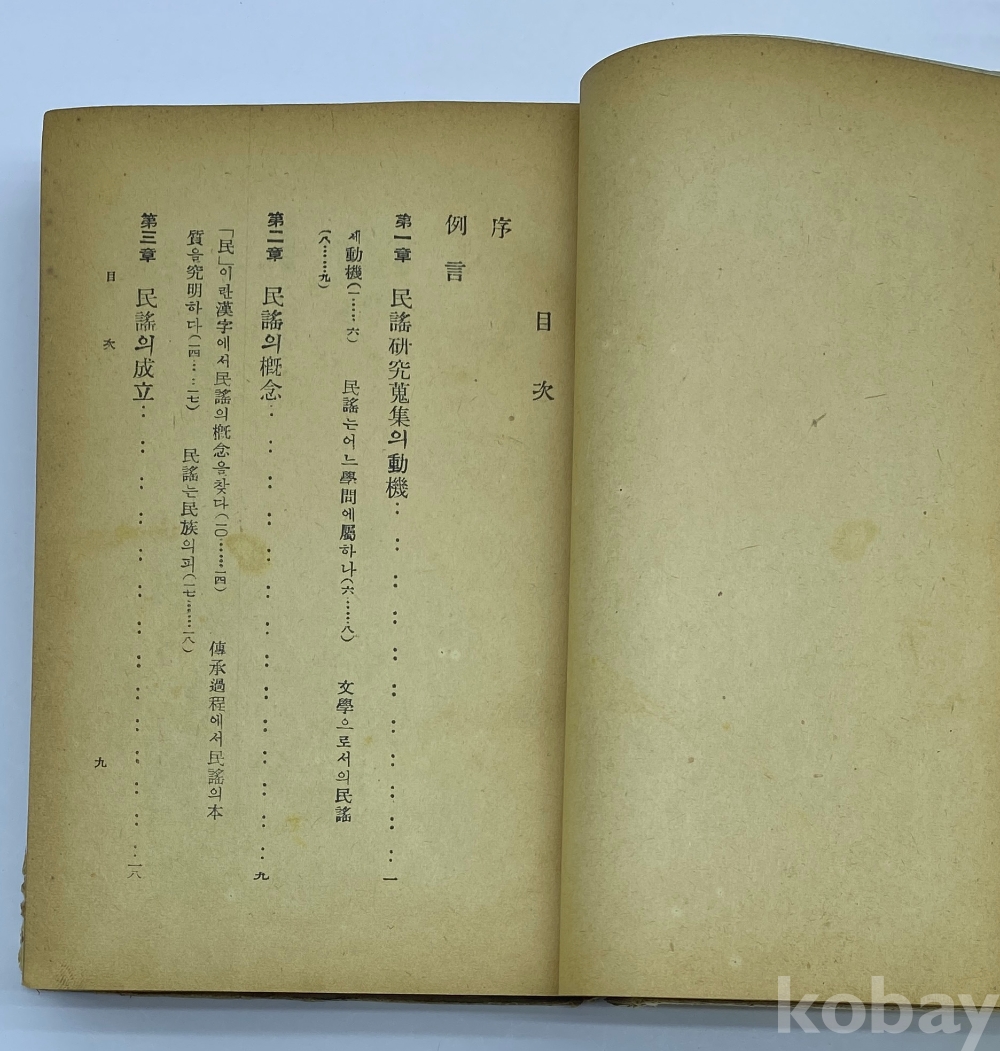 目次
序
例言
第一章 民謠硏究蒐集의動機……一
세動機(一……六) 民謠는어느學問에屬하나(六……八) 文學으로서의民謠
(八……九)
第二章 民謠의槪念……九
「民」이란漢字에서民謠의槪念을찾다(一〇……一四) 傳承過程에서民謠의本
質을究明하다(一四……一七) 民謠는民族의피(一七……一八)
第三章 民謠의成立……一八
目次
九
kobay